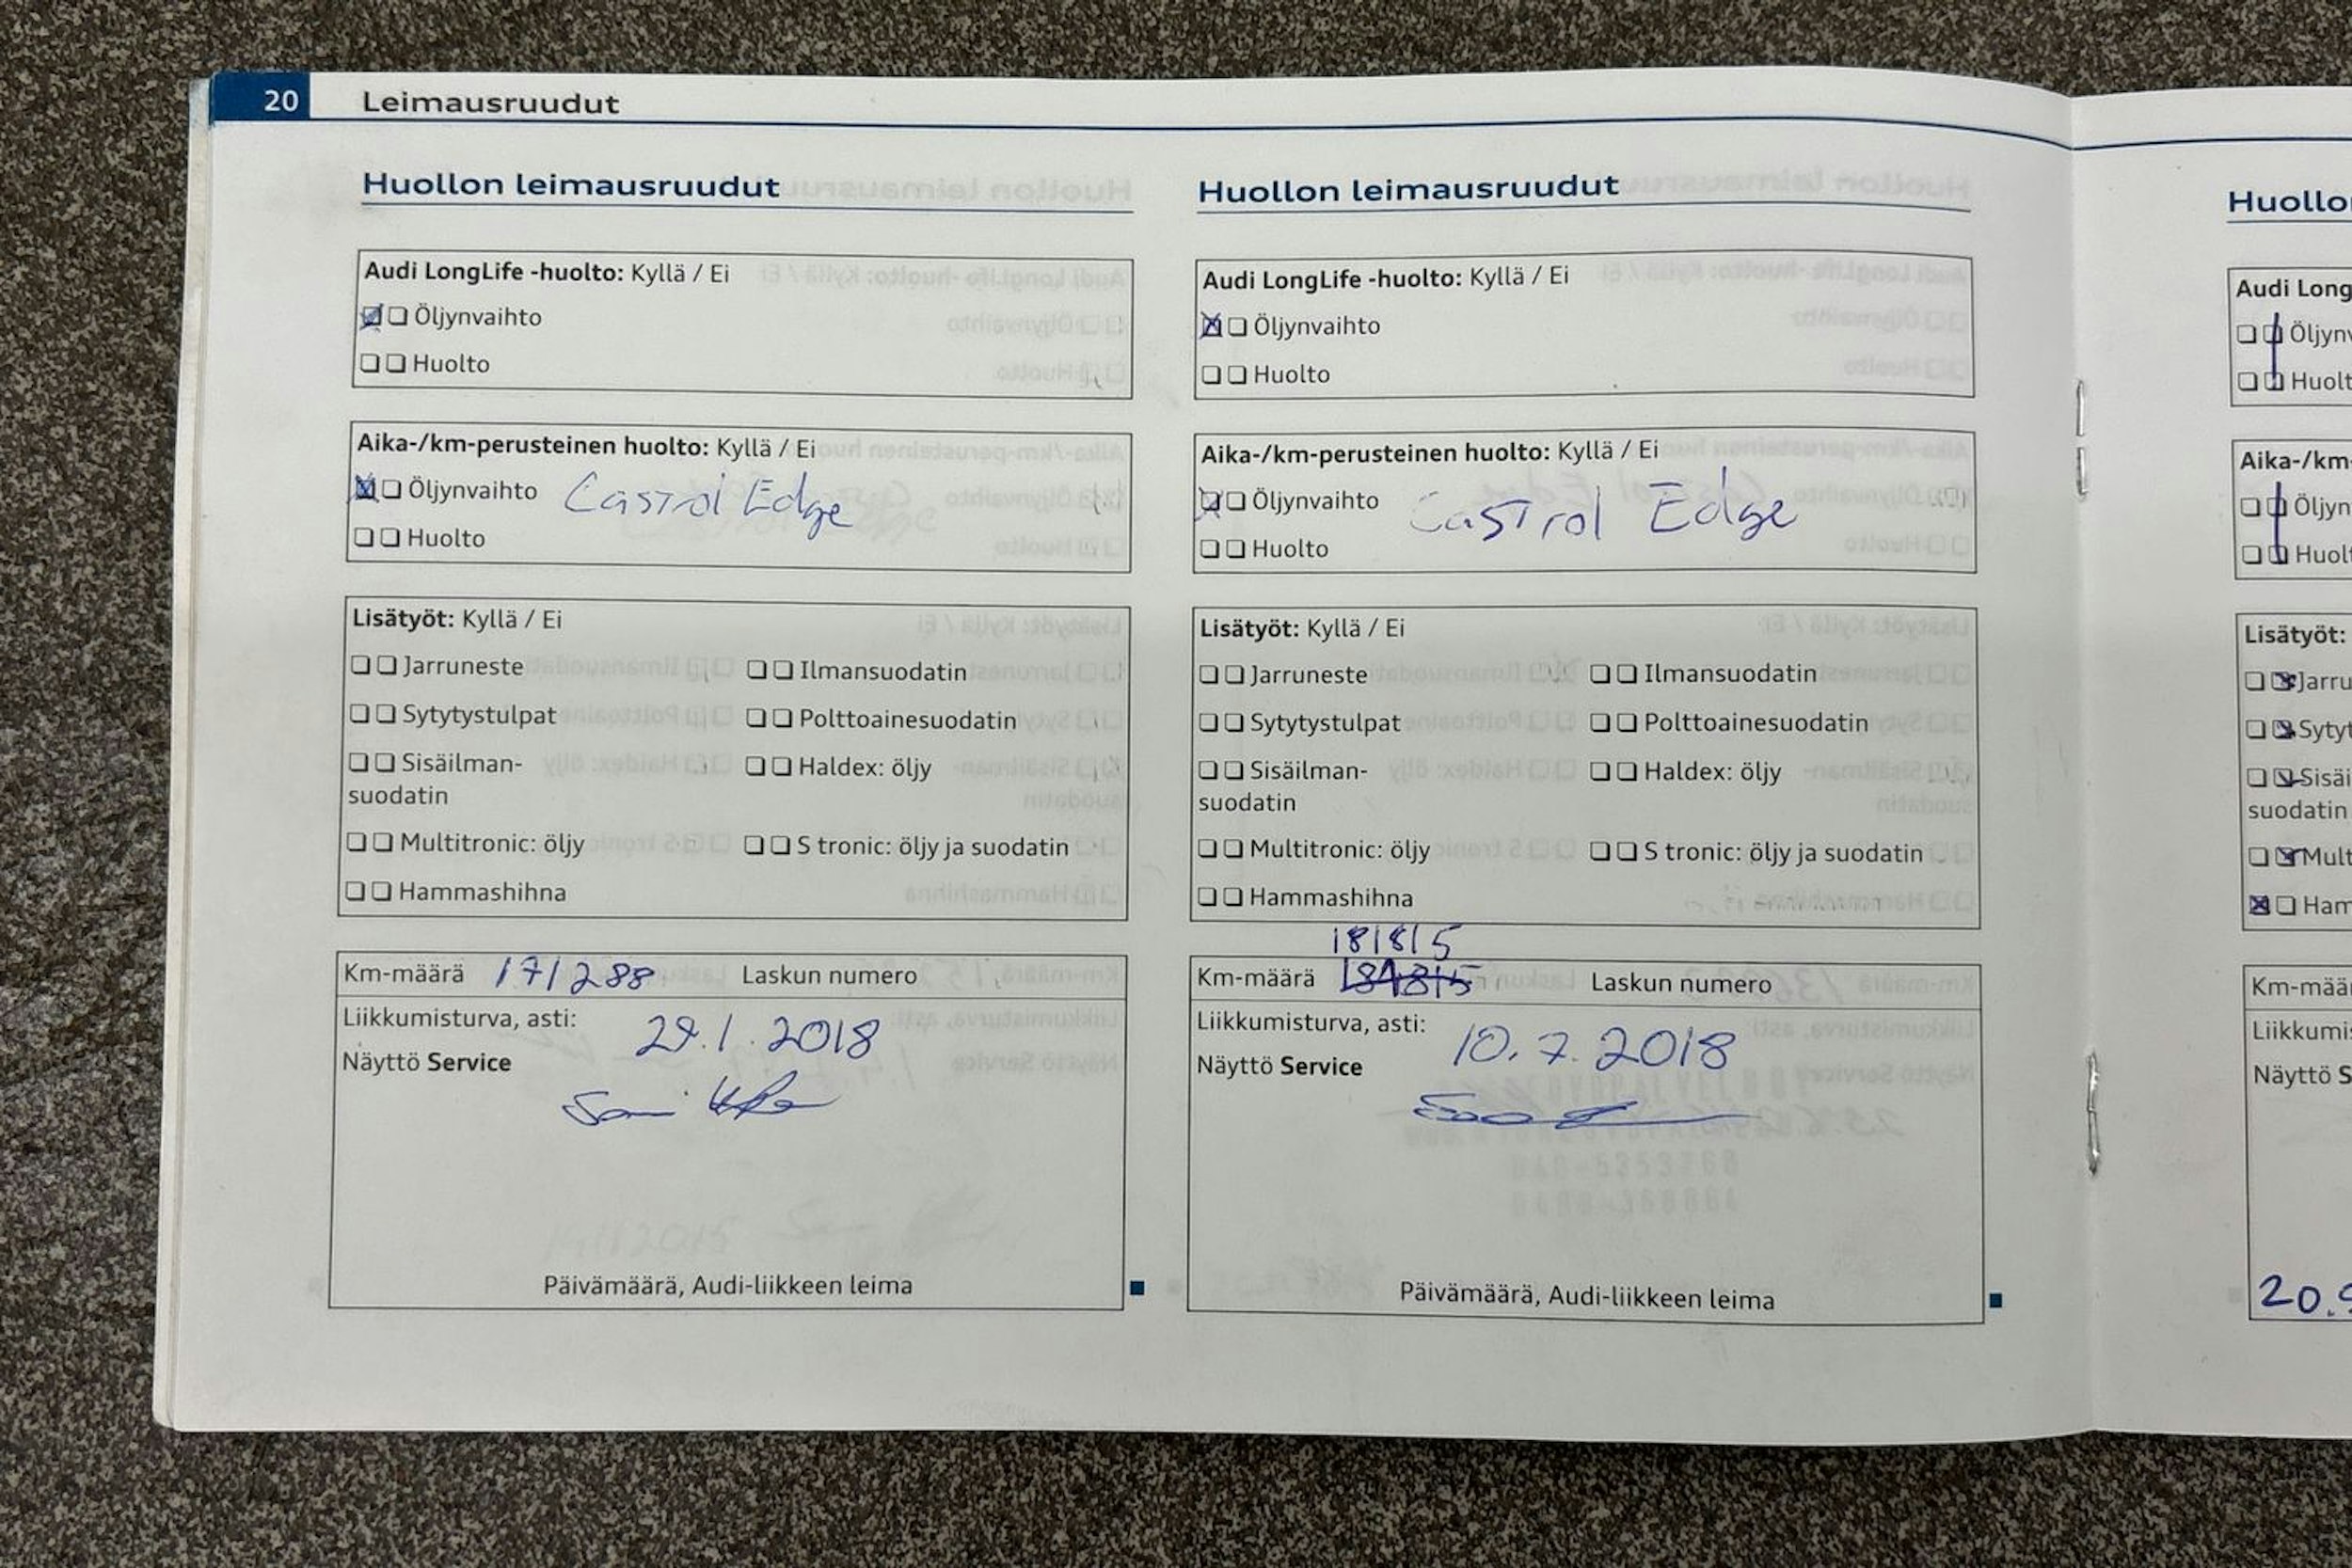 20 Leimausruudut
Huollon leimausruudut
Audi LongLife -huolto: Kyllä / Ei
Öljynvaihto
Huolto
Aika-/km-perusteinen huolto: Kyllä / Ei
Öljynvaihto Castrol Edge
Huolto
Lisätyöt: Kyllä / Ei
Jarruneste Ilmansuodatin
Sytytystulpat Polttoainesuodatin
Sisäilman- Haldex: öljy
suodatin
Multitronic: öljy S tronic: öljy ja suodatin
Hammashihna
Km-määrä 171288 Laskun numero
Liikkumisturva, asti:
29.1.2018
Näyttö Service
Päivämäärä, Audi-liikkeen leima
Huollon leimausruudut
Audi LongLife -huolto: Kyllä / Ei
Öljynvaihto
Huolto
Aika-/km-perusteinen huolto: Kyllä / Ei
Öljynvaihto Castrol Edge
Huolto
Lisätyöt: Kyllä / Ei
Jarruneste Ilmansuodatin
Sytytystulpat Polttoainesuodatin
Sisäilman- Haldex: öljy
suodatin
Multitronic: öljy S tronic: öljy ja suodatin
Hammashihna
181815
Km-määrä Laskun numero
Liikkumisturva, asti:
10.7.2018
Näyttö Service
Päivämäärä, Audi-liikkeen leima
Huollo
Audi Long
Öljynv
Huolt
Aika-/km-
Öljyn
Huolt
Lisätyöt:
Jarru
Sytyt
Sisäi
suodatin
Mult
Ham
Km-mää
Liikkumi
Näyttö S
20.9